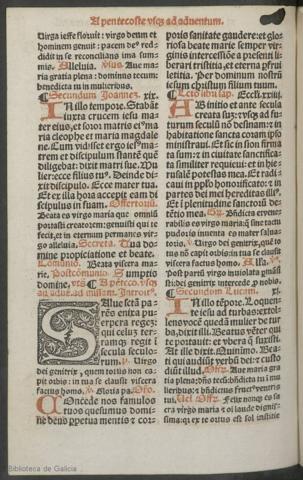 A pentecoste usq; ad adventum.
Virga iesse floruit: virgo deum et
hominem genuit: pacem de⁹ red-
didit in se reconcilians ima sum-
mis. Alleluia. Aue ma
ria gratia plena: dominus tecum:
benedicta tu in mulieribus.
Secundum Joannez. xix.
In illo tempore. Stabāt
iuxta crucem iesu ma
ter eius, et soror matris ei⁹ ma
ria cleophe et maria magdale
ne. Cum vidisset ergo ies⁹ ma-
trem et discipulum stantē quē
diligebat: dixit matri sue. Mu
lier ecce filius tu⁹. Deinde di-
xit discipulo. Ecce mater tua.
Et ex illa hora accepit eam di
scipulus in suam. Offertoriū.
Beata es virgo maria que omniū
portasti creatorem: genuisti qui te
fecit, et in eternum permanes vir-
go alleluia. Secreta. Tua do-
mine propiciatione et beate.
Comunio. Beata viscera ma-
rie. Postcōmunio. Sumptis
domine,
usq; ad adue. ad missam. Introit⁹.
Salue sctā pa-
rēs enixa pu-
erpera regez:
qui celuz ter-
ramq; regit ī
secula seculo-
rum. Virgo
dei genitrix, quem totus non ca-
pit orbis: in tua se clausit viscera
factus homo. Gloria pa.
Concede nos famulos
tuos quesumus domi-
ne deus ppetua mentis et cor-
poris sanitate gaudere: et glo-
riosa beate marie semper vir-
ginis intercessiōe a presenti li-
berari tristitia, et eterna pfrui
letitia. Per dominum nostrū
iesum christum filium tuum.
Lectio libri sap. Eccli. xxiiij.
Ab initio et ante secula
creata sum: et usq; ad fu-
turum seculū nō desinam: et in
habitatione sancta coram ipso
ministraui. Et sic in sion firma
ta sum: et in ciuitate sanctifica-
ta similiter requieui: et in hie-
rusalē potestas mea. Et radi-
caui in pplo honorificato: et in
partes dei mei hereditas illi⁹.
Et ī plenitudine sanctorū de-
tētio mea. Bn̄dicta et vene-
rabilis es virgo maria: q̄ sine tactu
pudoris inuenta es mater salua-
toris. Virgo dei genitrix, quē to-
tus nō capit orbis: in tua se clausit
viscera factus homo.
Post partū virgo inuiolata pmāsi
sti: dei genitrix intercede p nobis.
Secundum Lucam. xj.
In illo tēpore. Loquen-
te iesu ad turbas: extol-
lens vocē quedā mulier de tur
ba, dixit illi. Beatus vēter qui
te portauit: et vbera q̄ suxisti.
At ille dixit. Quinimo. Bea-
ti qui audiūt verbū dei: et custo
diūt illud. Aue maria gra
tia plena: dn̄s tecū: bn̄dicta tu ī mu
lieribus: et bn̄dictus fruct⁹ ventris
tui. Felix nanq; es sa
cra virgo maria et oī laude dignis-
sima: q̄r ex te ortus est sol iustitie
Biblioteca de Galicia